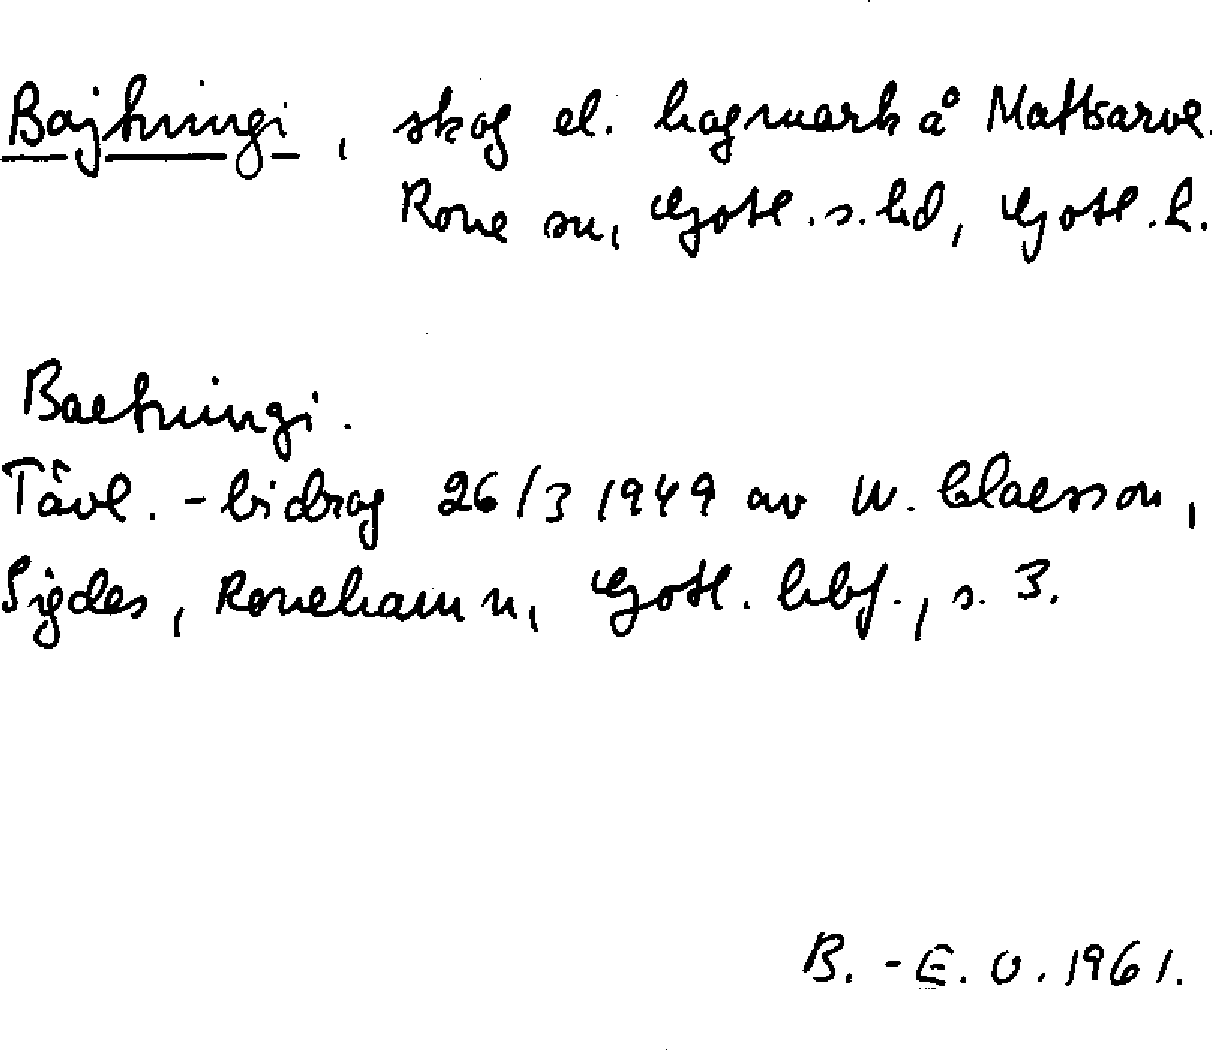 Bajtningi, skog el. hagmark å Mattsarve.
Rone sn, Gotl. s. hd, Gotl. l.
Baetningi.
Tävl.-bidrag 26/3 1949 av W. Claesson,
Sigdes, Ronehamn, Gotl. hbf., s. 3.
B.-E. O. 1961.